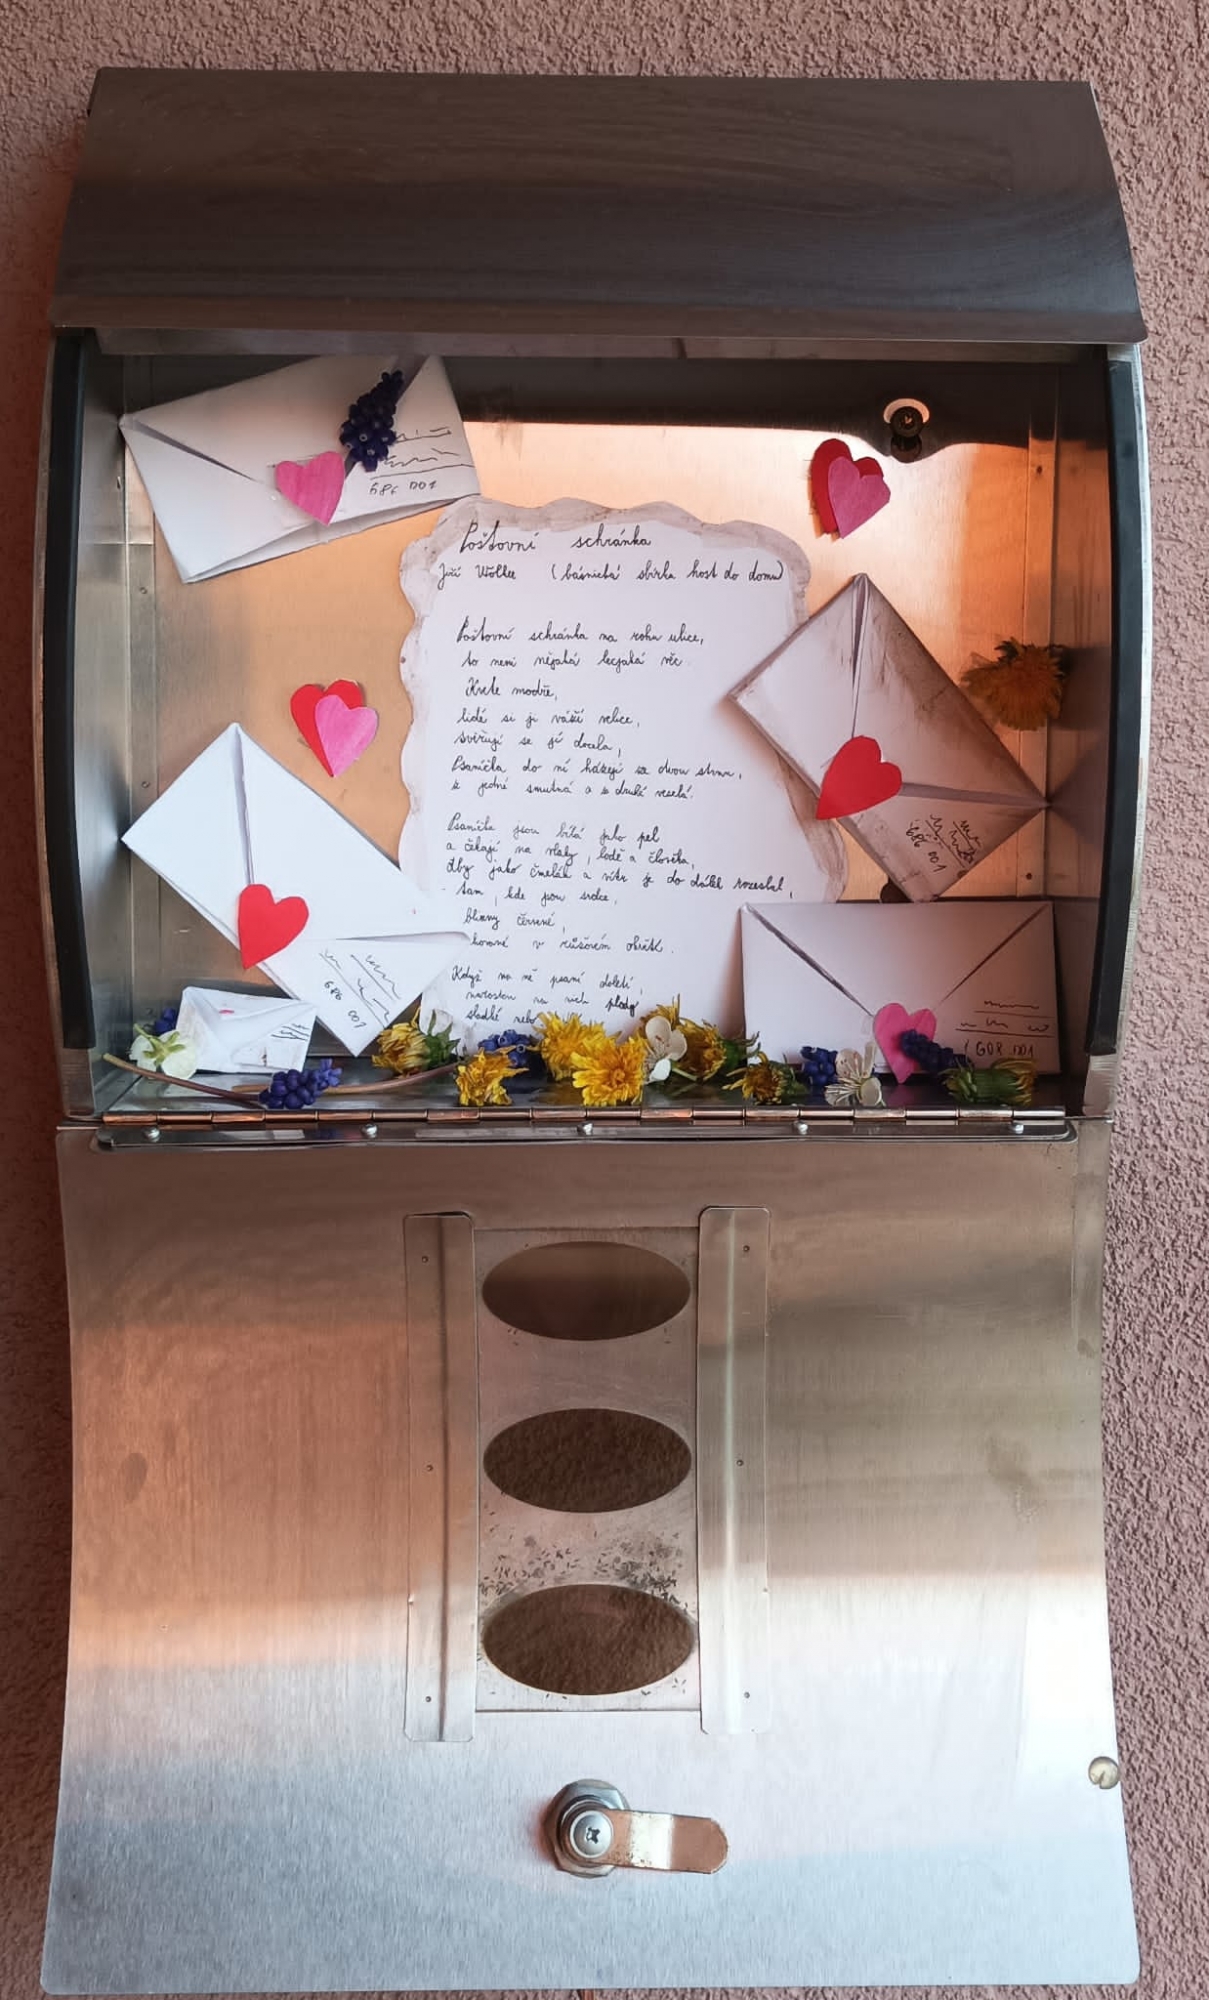 686 001
Poštovní schránka
Jiří Wolker (básnická sbírka host do domu)
Poštovní schránka na rohu ulice,
to není nějaká lecjaká věc.
Kvete modře,
lidé si jí váží velice,
svěřují se jí docela,
Psaníčka do ní házejí ze dvou stran,
z jedné smutná a z druhé veselá.
Psaníčka jsou bílá jako pel
a čekají na vlaky, lodě a člověka,
aby jako čmelák a vítr je do dálek rozesel,
tam, kde jsou srdce,
blizny červené,
v růžovém okvětí.
Když na ně psaní doletí,
narostou na nich plody
sladké nebo
686 001
686 001